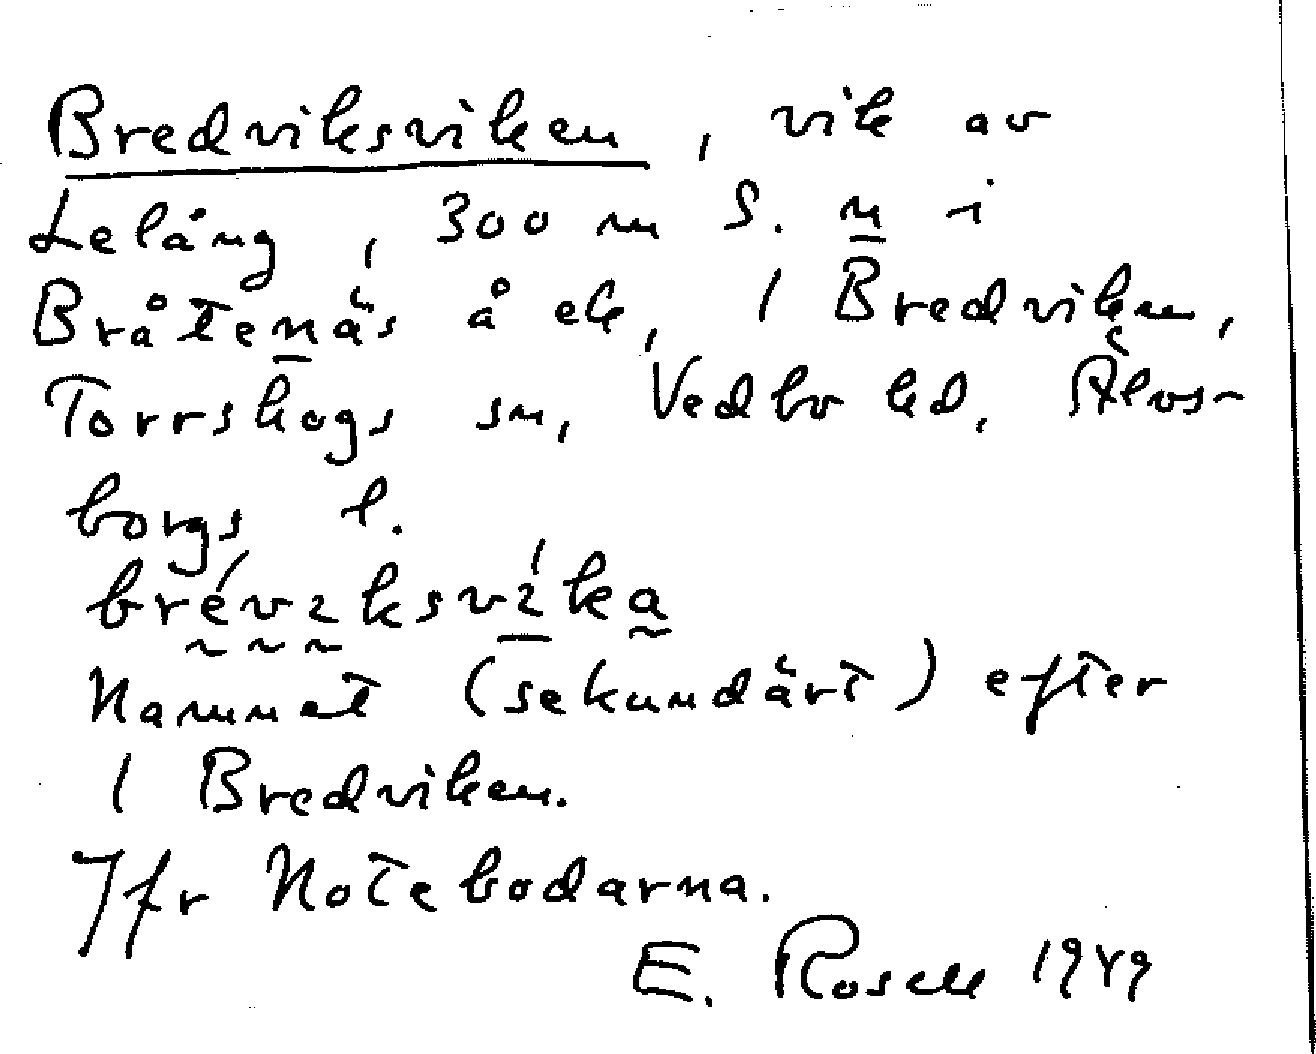 Bredviksviken, vik av
Lelång, 300 m S. n i
Bråtenäs å ek, 1 Bredviken,
Torrskogs sn, Vedbo hd, Älvs-
borgs l.
brévıksvı́ka
Namnet (sekundärt) efter
1 Bredviken.
Jfr Notebodarna.
E. Rosell 1949